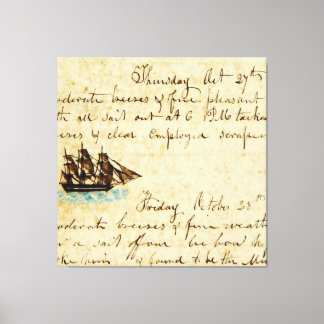 Thursday Oct 27th
oderate breezes & fine pleasant
th all sail out at 6 P.M. tacked
eezes & clear Employed scrapin
Friday October 28th
oderate breezes & fine weath
a sail off our lee bow
& found to be the